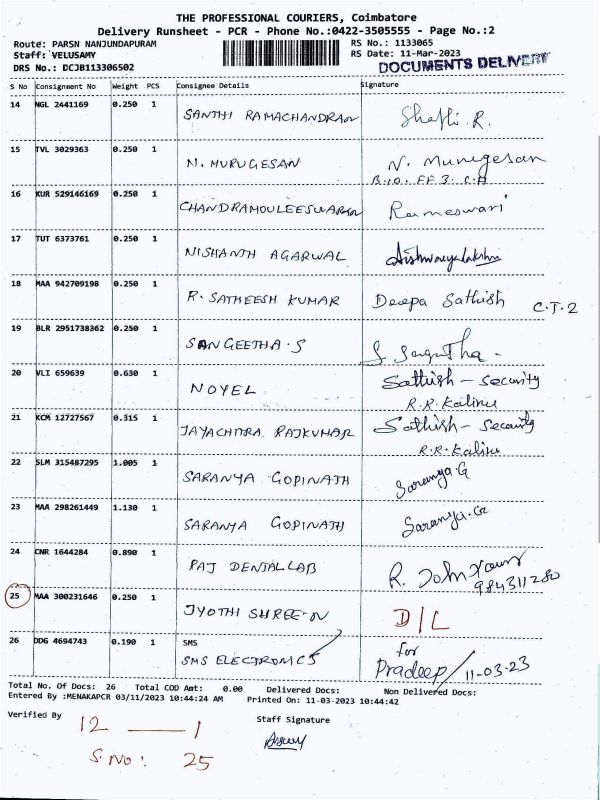 THE PROFESSIONAL COURIERS, Coimbatore
Delivery Runsheet - PCR - Phone No.:0422-3505555 - Page No.:2
Route: PARSN NANJUNDAPURAM RS No.: 1133065
Staff: VELUSAMY RS Date: 11-Mar-2023
DRS No.: DCJB113306502 DOCUMENTS DELIVERY
S No Consignment No Weight PCS Consignee Details Signature
14 NGL 2441169 0.250 1 SANTHI RAMACHANDRAN
15 TVL 3029363 0.250 1 N. MURUGESAN N. Murugesan
16 KUR 529146169 0.250 1 CHANDRAMOULEESWARAN Rameswari
17 TUT 6373761 0.250 1 NISHANTH AGARWAL
18 MAA 942709198 0.250 1 R. SATHEESH KUMAR Deepa Sathish C.T.2
19 BLR 2951738362 0.250 1 SANGEETHA.S
20 VLI 659639 0.630 1 NOYEL Sathish - Security
21 KCM 12727567 0.315 1 JAYACHITRA RAJKUMAR Sathish - Security
22 SLM 315487295 1.005 1 SARANYA GOPINATH Saranya G
23 MAA 298261449 1.130 1 SARANYA GOPINATH Saranya.G
24 CNR 1644284 0.890 1 PAJ DENTAL LAB R. John
25 MAA 300231646 0.250 1 JYOTHI SHREE-N D/L
26 DDG 4694743 0.190 1 SMS
SMS ELECTRONICS for Pradeep/11-03-23
Total No. Of Docs: 26 Total COD Amt: 0.00 Delivered Docs: Non Delivered Docs:
Entered By :MENAKAPCR 03/11/2023 10:44:24 AM Printed On: 11-03-2023 10:44:42
Verified By Staff Signature
12 — 1
S.No: 25